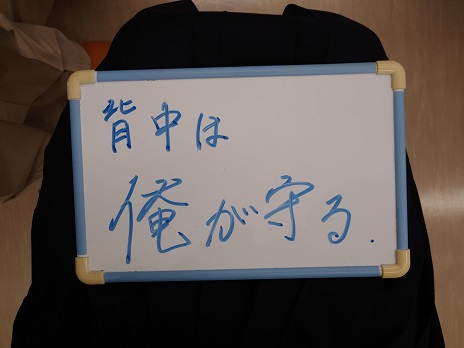 背中は
俺が守る.